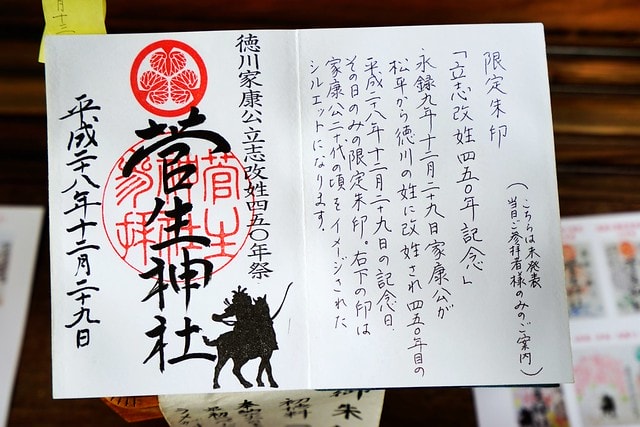 限定朱印
(こちらは未発表
当日ご参拝者様のみのご案内)
「立志改姓四五〇年記念」
永録九年十二月二十九日家康公が
松平から徳川の姓に改姓され四五〇年目の
平成二八年十二月二十九日の記念日。
その日のみの限定朱印。右下の印は
家康公二十代の頃をイメージされた
シルエットになります。
徳川家康公立志改姓四五〇年祭
菅生神社
平成二十八年十二月二十九日